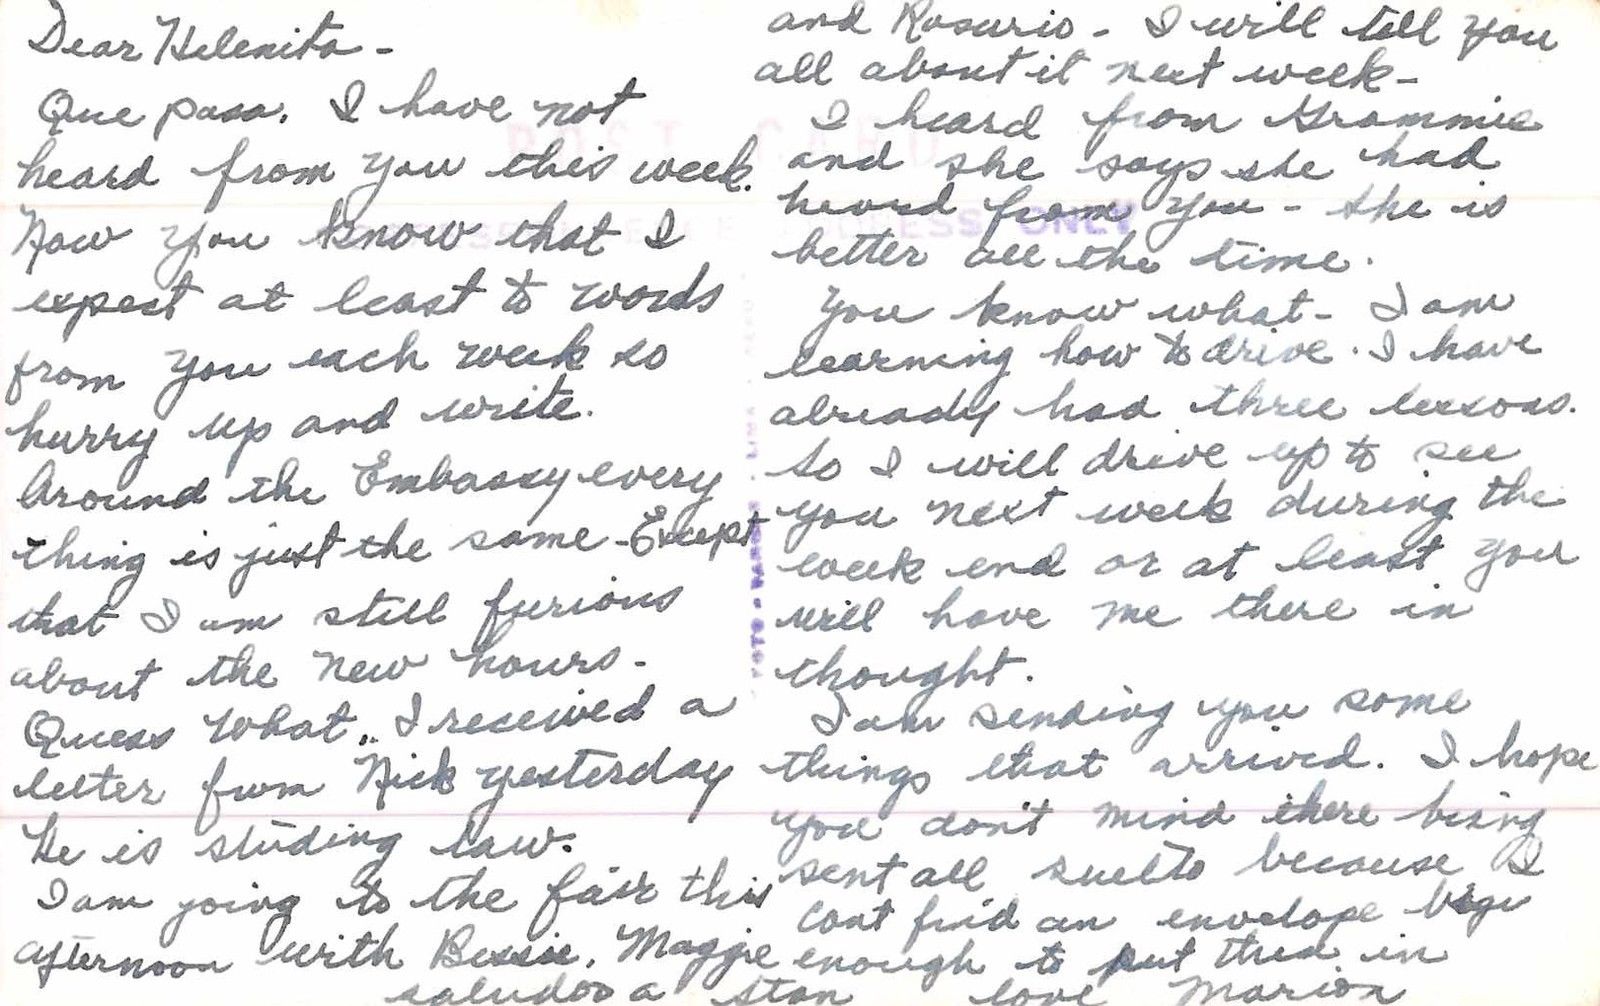 Dear Helenita -
Que pasa. I have not
heard from you this week.
Now you know that I
expect at least to words
from you each week so
hurry up and write.
Around the Embassy every
thing is just the same - Except
that I am still furious
about the new hours -
Quess what.. I received a
letter from Nick yesterday
He is studing law.
I am going to the fair this
afternoon with Bessie, Maggie
and Rosario - I will tell you
all about it next week -
I heard from Grammie
and she says she had
heard from you - she is
better all the time.
You know what - I am
learning how to drive. I have
already had three lessons.
So I will drive up to see
you next week during the
week end or at least you
will have me there in
thought.
I am sending you some
things that arrived. I hope
you don't mind there being
sent all suelto because I
cant find an envelope bige
enough to put them in
saludos a Stan love Marion
POST CARD
ADDRESS ONLY